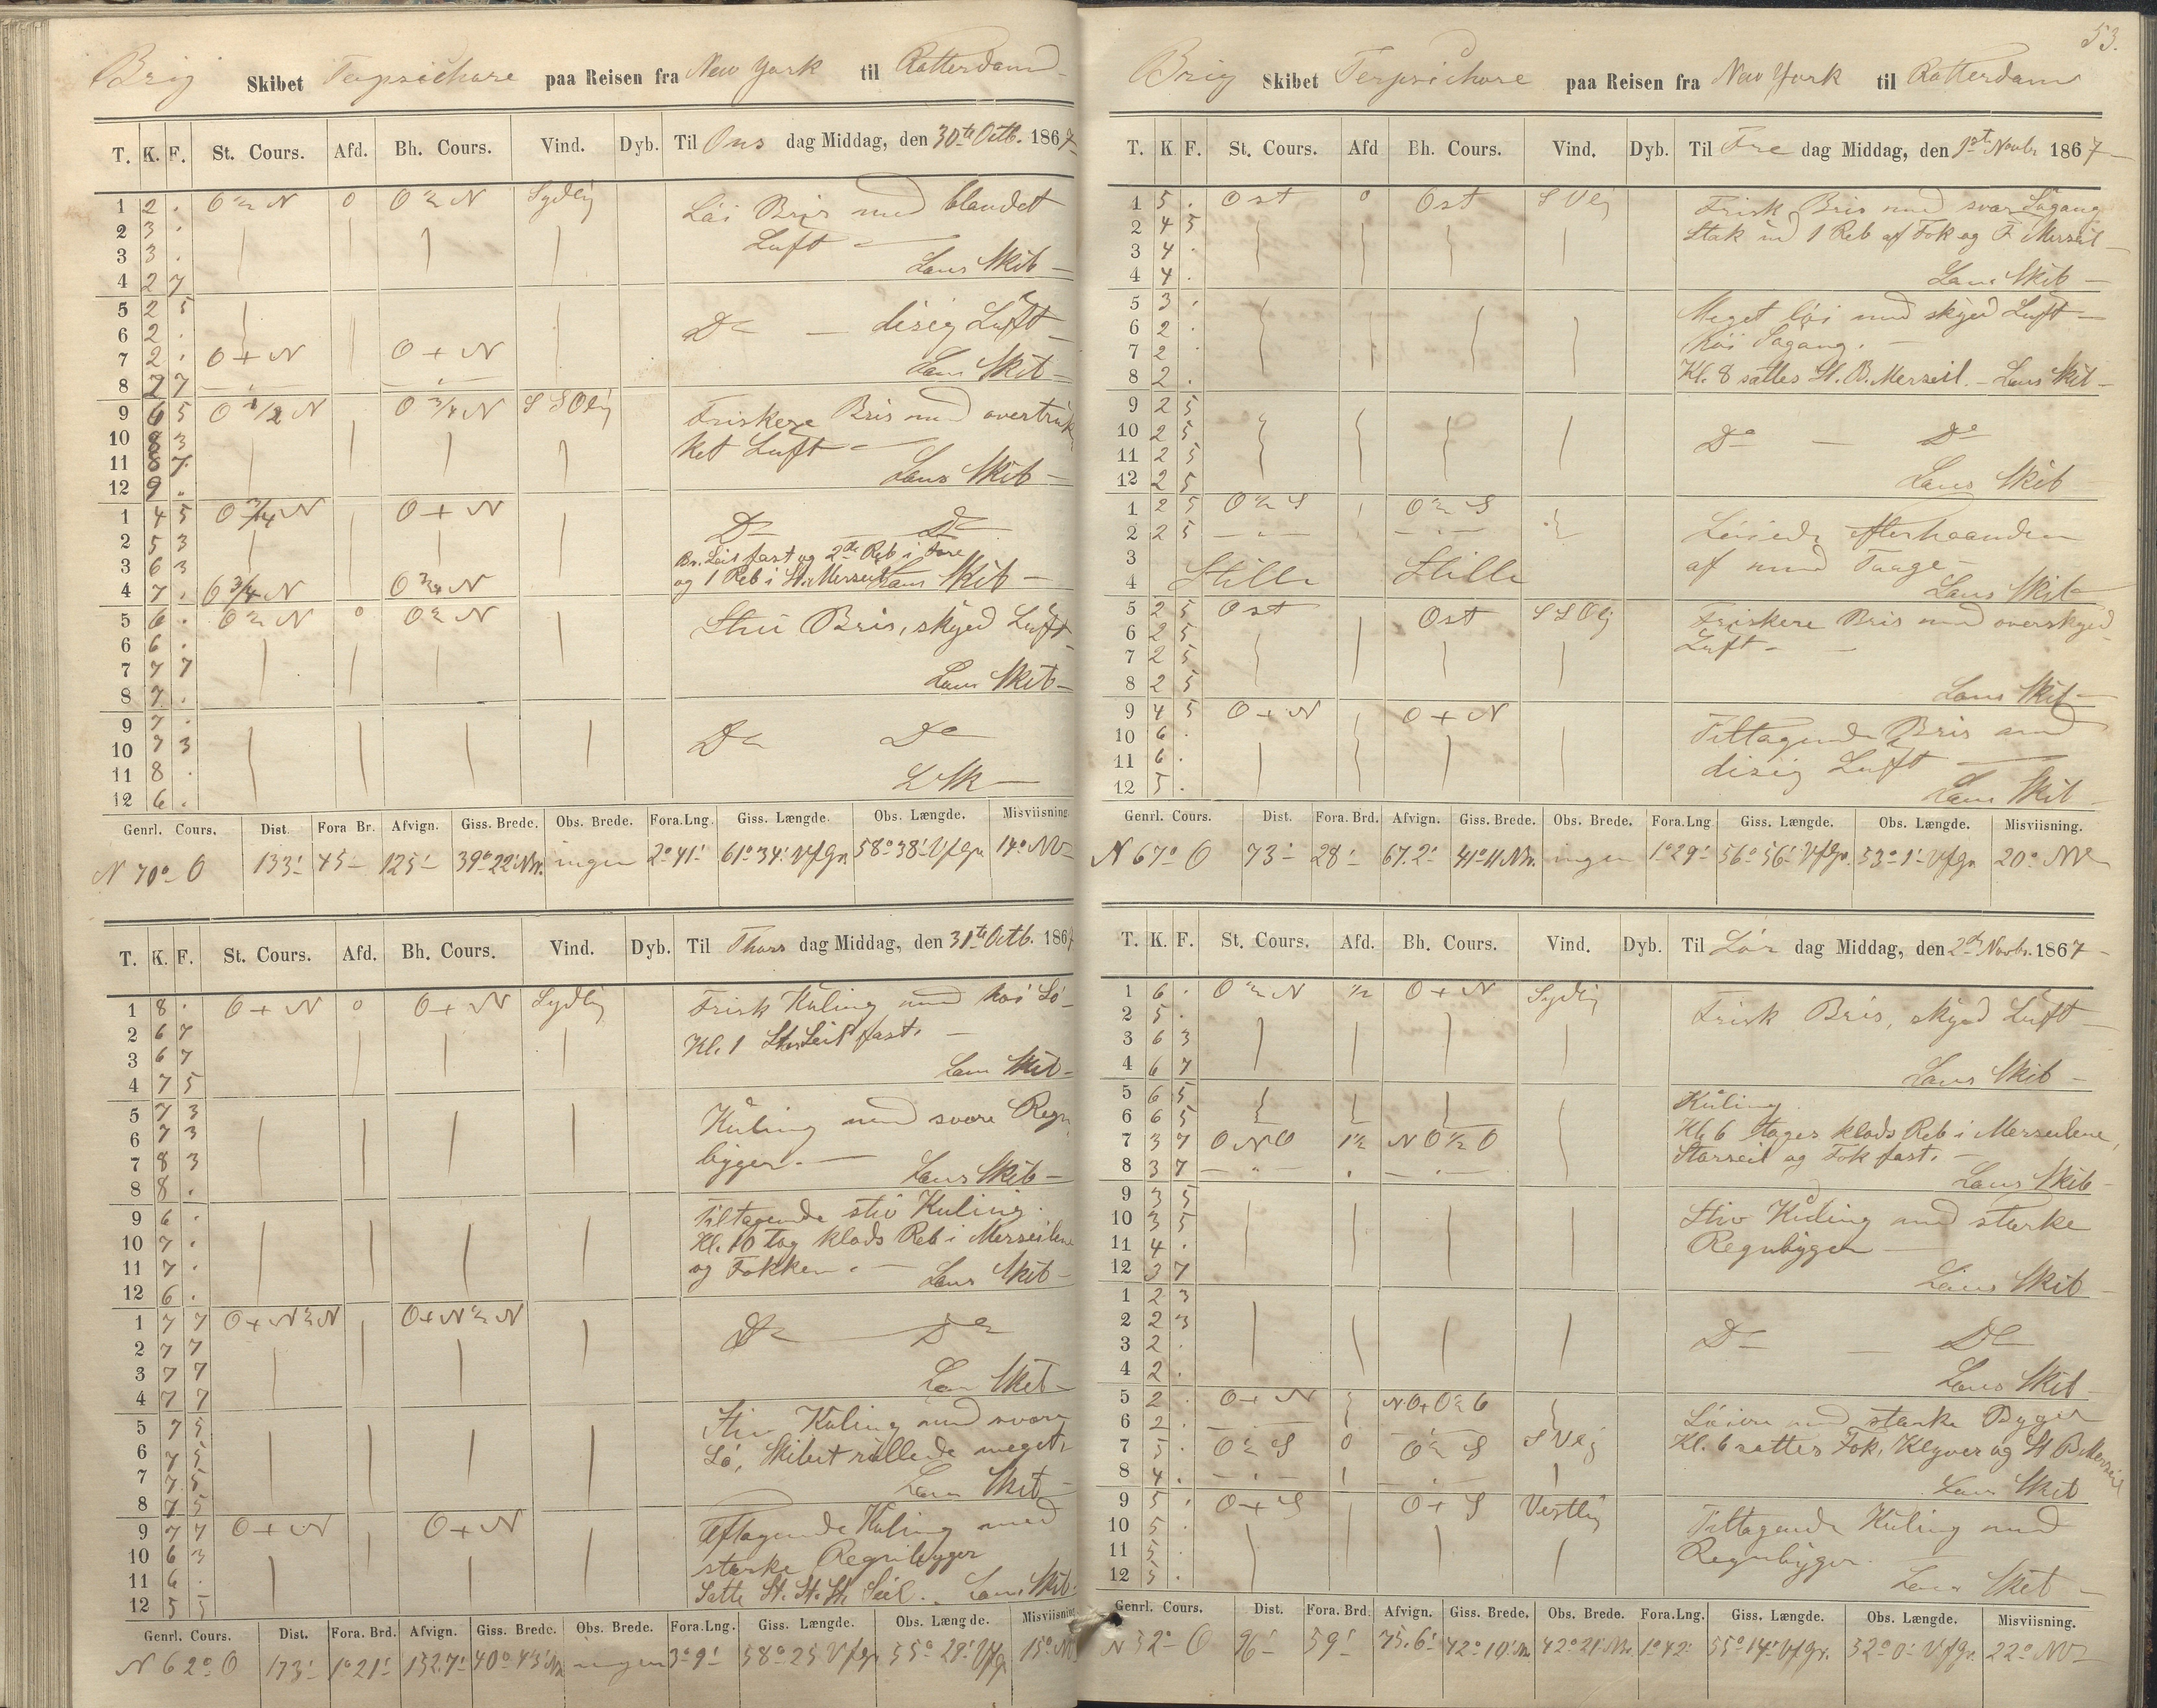 Brig Skibet Terpsichore paa Reisen fra New York til Rotterdam
T. K. F. St. Cours. Afd. Bh. Cours. Vind. Dyb. Til Ons dag Middag, den 30te Octb. 1867
1 2 . O ½ N 0 O ½ N Sydlig Löi Bris med blandet
2 3 . Luft
3 3 . Lens Skib
4 2 7
5 2 5
6 2 . Do disig Luft
7 2 . O + N O + N Lens Skib
8 2 7
9 6 5 O ½ N O ¾ N S S Olig Friskere Bris med overtrük
10 8 3 ket Luft
11 8 7 Lens Skib
12 9 .
1 4 5 O ¾ N O + N Do Do
2 5 3 fast og 2de Reb i
3 6 3 og 1 Reb i St. Merseil Lens Skib
4 7 . O ¾ N O ¾ N
5 6 . O ½ N 0 O ½ N Stiv Bris, skyed Luft
6 6 .
7 7 7 Lens Skib
8 7 .
9 7 .
10 7 3 Do Do
11 8 . L Sk
12 6 .
Genrl. Cours. Dist. Fora Br. Afvign. Giss. Brede. Obs. Brede. Fora.Lng. Giss. Længde. Obs. Længde. Misviisning
N 70° O 133' 45 125' 39° 22' Nr. ingen 2° 41' 61° 34' V f Gr. 58° 38' V f Gr. 14° NV
T. K. F. St. Cours. Afd. Bh. Cours. Vind. Dyb. Til Thors dag Middag, den 31te Octb. 1867
1 8 . O + N 0 O + N Sydlig Frisk Kuling med höi Sö
2 6 7 Kl. 1 Seil fast.
3 6 7 Lens Skib
4 7 5
5 7 3 Kuling med svare Regn
6 7 3
7 8 3 bygger. Lens Skib
8 8 .
9 6 . Tiltagende stiv Kuling.
10 7 . Kl. 10 tog klods Reb i Merseilene
11 7 . og Fokken. Lens Skib
12 6 .
1 7 7 O + N ½ N O + N ½ N Do Do
2 7 7
3 7 7 Lens Skib
4 7 7
5 7 5 Stiv Kuling med svær
6 7 5 Sö, Skibet rullede meget.
7 7 5 Lens Skib
8 7 5
9 7 7 O + N O + N Aftagende Kuling med
10 6 3 stærke Regnbygger
11 6 . Satte St. St. Seil. Lens Skib
12 5 5
Genrl. Cours. Dist. Fora. Brd. Afvign. Giss. Brede. Obs. Brede. Fora.Lng. Giss. Længde. Obs. Længde. Misviisning
N 62° O 173' 1° 21' 152.7' 40° 43' Nr. ingen 3° 9' 58° 25' V f Gr. 55° 29' V f Gr. 15° NV
53.
Brig Skibet Terpsichore paa Reisen fra New York til Rotterdam
T. K F. St. Cours. Afd Bh. Cours. Vind. Dyb. Til Fre dag Middag, den 1ste Novbr 1867
1 5 . Ost 0 Ost S Vlig Frisk Bris med svær Sögang
2 4 5 Stak ud 1 Reb af Fok og F. Merseil
3 4 .
4 4 . Lens Skib
5 3 . Meget löi med skyed Luft
6 2 .
7 2 . höi Sögang.
8 2 . Kl. 8 sattes St. B. Merseil. Lens Skib
9 2 5
10 2 5 Do Do
11 2 5
12 2 5 Lens Skib
1 2 5 O ½ S O ½ S Löiede efterhaanden
2 2 5
3 af med Taage
4 Stille Stille Lens Skib
5 2 5 Ost Ost S S Olig Friskere Bris med overskyed
6 2 5 Luft
7 2 5
8 2 5 Lens Skib
9 4 5 O + N O + N Tiltagende Bris med
10 6 .
11 6 . disig Luft
12 5 . Lens Skib
Genrl. Cours. Dist. Fora. Brd. Afvign. Giss. Brede. Obs. Brede. Fora.Lng Giss. Længde. Obs. Længde. Misviisning.
N 67° O 73' 28' 67.2' 41° 11' Nr. ingen 1° 29' 56° 56' V f Gr. 53° 1' V f Gr. 20° NV
T. K. F. St. Cours. Afd. Bh. Cours. Vind. Dyb. Til Lör dag Middag, den 2den Novbr. 1867
1 6 . O ½ N ½ O + N Sydlig
2 5 . Frisk Bris, skyed Luft
3 6 3
4 6 7 Lens Skib
5 6 5 Kuling.
6 6 5 Kl. 6 toges klods Reb i Merseilene,
7 3 7 O N O 1½ N O ½ O Storseil og Fok fast.
8 3 7 Lens Skib
9 3 5
10 3 5 Stiv Kuling med stærke
11 4 . Regnbyger
12 3 7 Lens Skib
1 2 3
2 2 3
3 2 . Do Do
4 2 . Lens Skib
5 2 . O + N Löiere med stærke Byger
6 2 . Kl. 6 sattes Fok, Klyver og St B Merseil
7 5 . O ½ S 0 O ½ S S Vlig
8 4 . Lens Skib
9 5 . O + S O + S Vestlig Tiltagende Kuling med
10 5 .
11 5 . Regnbyger.
12 5 . Lens Skib
Genrl. Cours. Dist. Fora. Brd. Afvign. Giss. Brede. Obs. Brede. Fora.Lng. Giss. Længde. Obs. Længde. Misviisning.
N 52° O 96' 59' 75.6' 42° 10' Nr. 42° 21' Nr. 1° 42' 55° 14' V f Gr. 52° 0' V f Gr. 22° NV